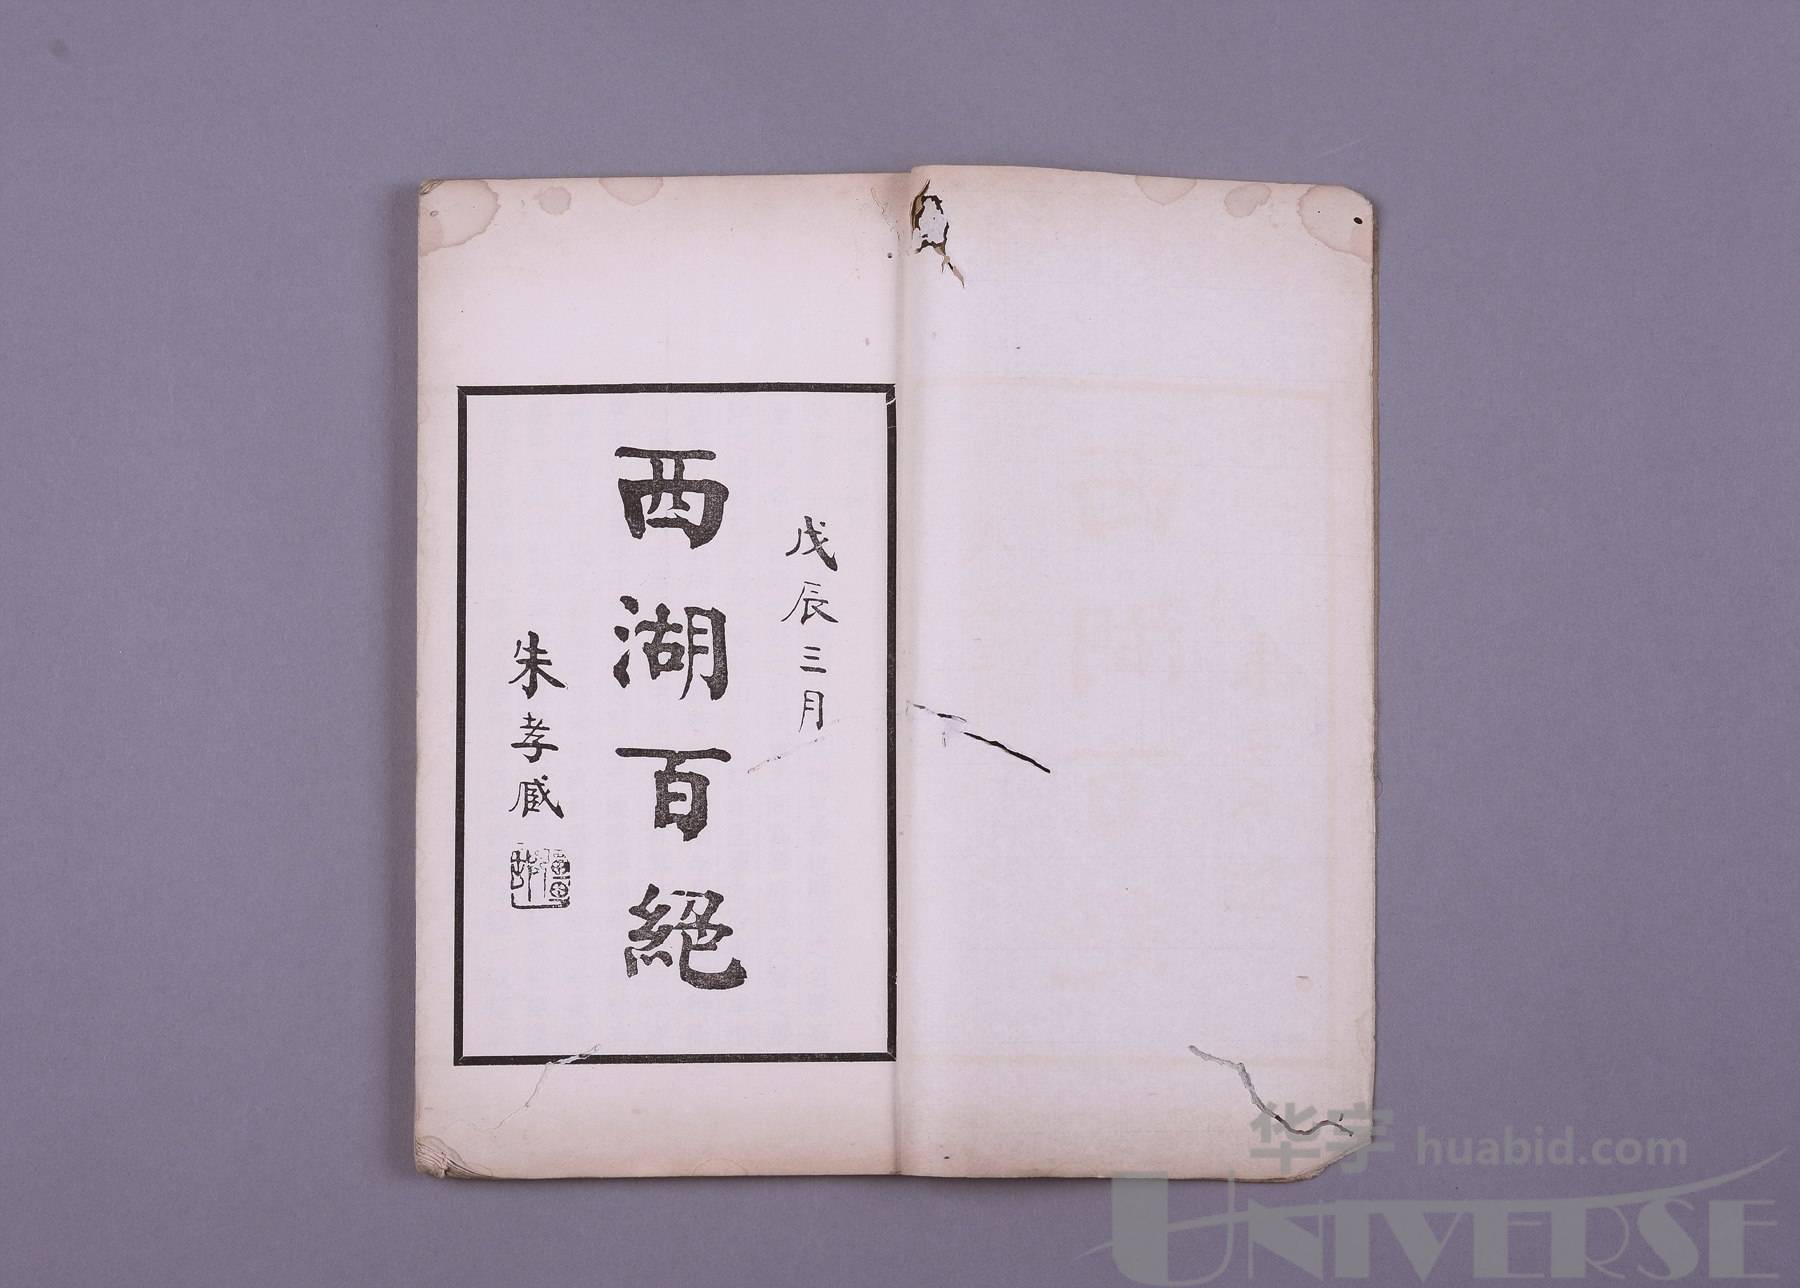 戊辰三月
西湖百絕
朱孝臧
华宇 huabid.com
UNIVERSE